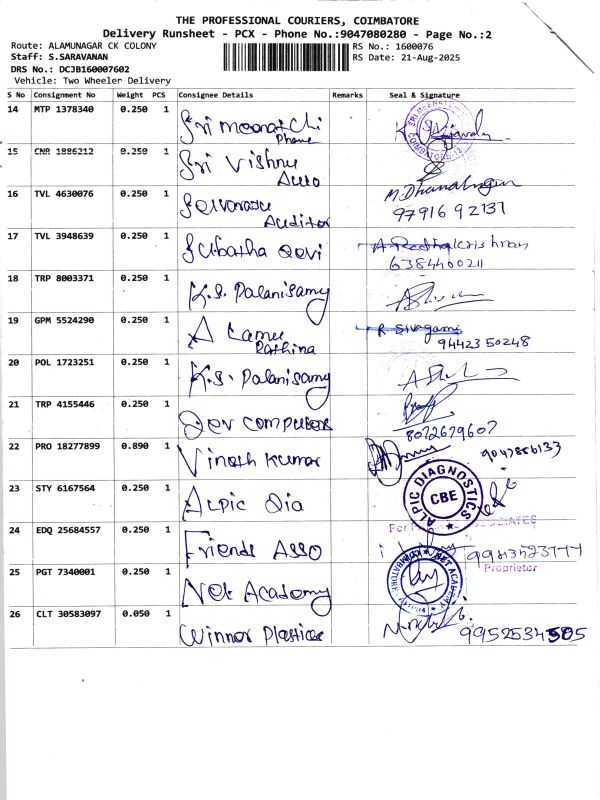 THE PROFESSIONAL COURIERS, COIMBATORE
Delivery Runsheet - PCX - Phone No.:9047080280 - Page No.:2
Route: ALAMUNAGAR CK COLONY RS No.: 1600076
Staff: S.SARAVANAN RS Date: 21-Aug-2025
DRS No.: DCJB160007602
Vehicle: Two Wheeler Delivery
S No Consignment No Weight PCS Consignee Details Remarks Seal & Signature
14 MTP 1378340 0.250 1 Sri meenatchi
Phone
15 CNR 1886212 0.250 1 Sri Vishnu
Auto
16 TVL 4630076 0.250 1 M. Dhanalingam
Auditor 97916 92137
17 TVL 3948639 0.250 1 Subatha Devi A. Radhakrishnan
6384400211
18 TRP 8003371 0.250 1 K.S. Palanisamy
19 GPM 5524290 0.250 1 A Lamu R. Sivagami
Rathina 94423 50248
20 POL 1723251 0.250 1 K.S. Palanisamy
21 TRP 4155446 0.250 1 Dev computers
8072679607
22 PRO 18277899 0.890 1 Vinoth Kumar
23 STY 6167564 0.250 1 Alpic Dia ALPIC DIAGNOSTICS CBE
24 EDQ 25684557 0.250 1 Friends Asso
Proprietor
25 PGT 7340001 0.250 1 Net Academy NET ACADEMY
26 CLT 30583097 0.050 1 Winner Plastices